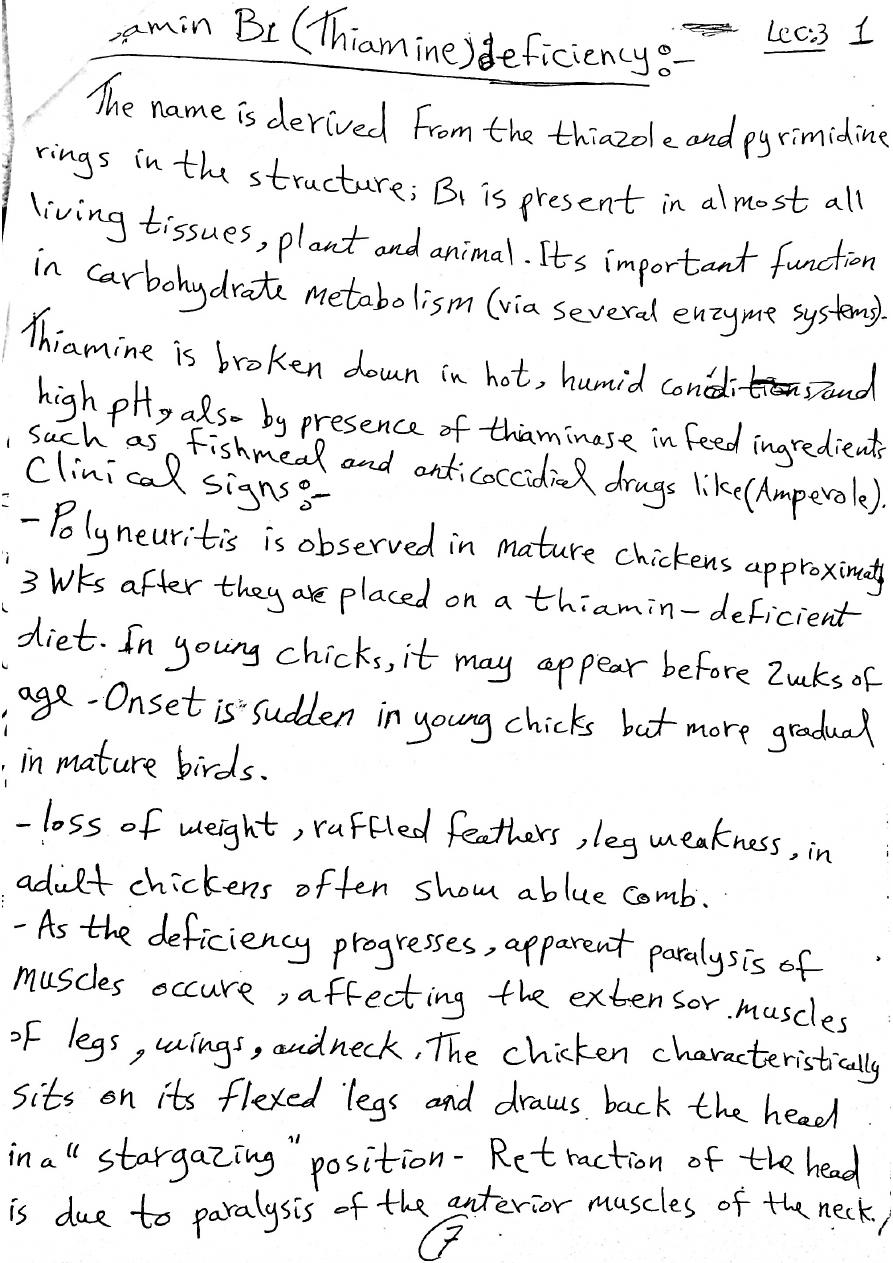 amin B1 (Thiamine) deficiency:- Lec:3 1
The name is derived From the thiazole and pyrimidine
rings in the structure; B1 is present in almost all
living tissues, plant and animal. Its important function
in carbohydrate metabolism (via several enzyme systems).
Thiamine is broken down in hot, humid conditions and
high pH, also by presence of thiaminase in feed ingredients
such as fishmeal and anticoccidial drugs like (Amperole).
Clinical signs:-
- Polyneuritis is observed in mature chickens approximatly
3 wks after they are placed on a thiamin-deficient
diet. In young chicks, it may appear before 2wks of
age - Onset is sudden in young chicks but more gradual
in mature birds.
- loss of weight, ruffled feathers, leg weakness, in
adult chickens often show a blue comb.
- As the deficiency progresses, apparent paralysis of
muscles occure, affecting the extensor muscles
of legs, wings, and neck. The chicken characteristically
sits on its flexed legs and draws back the head
in a "stargazing" position - Retraction of the head
is due to paralysis of the anterior muscles of the neck.
7